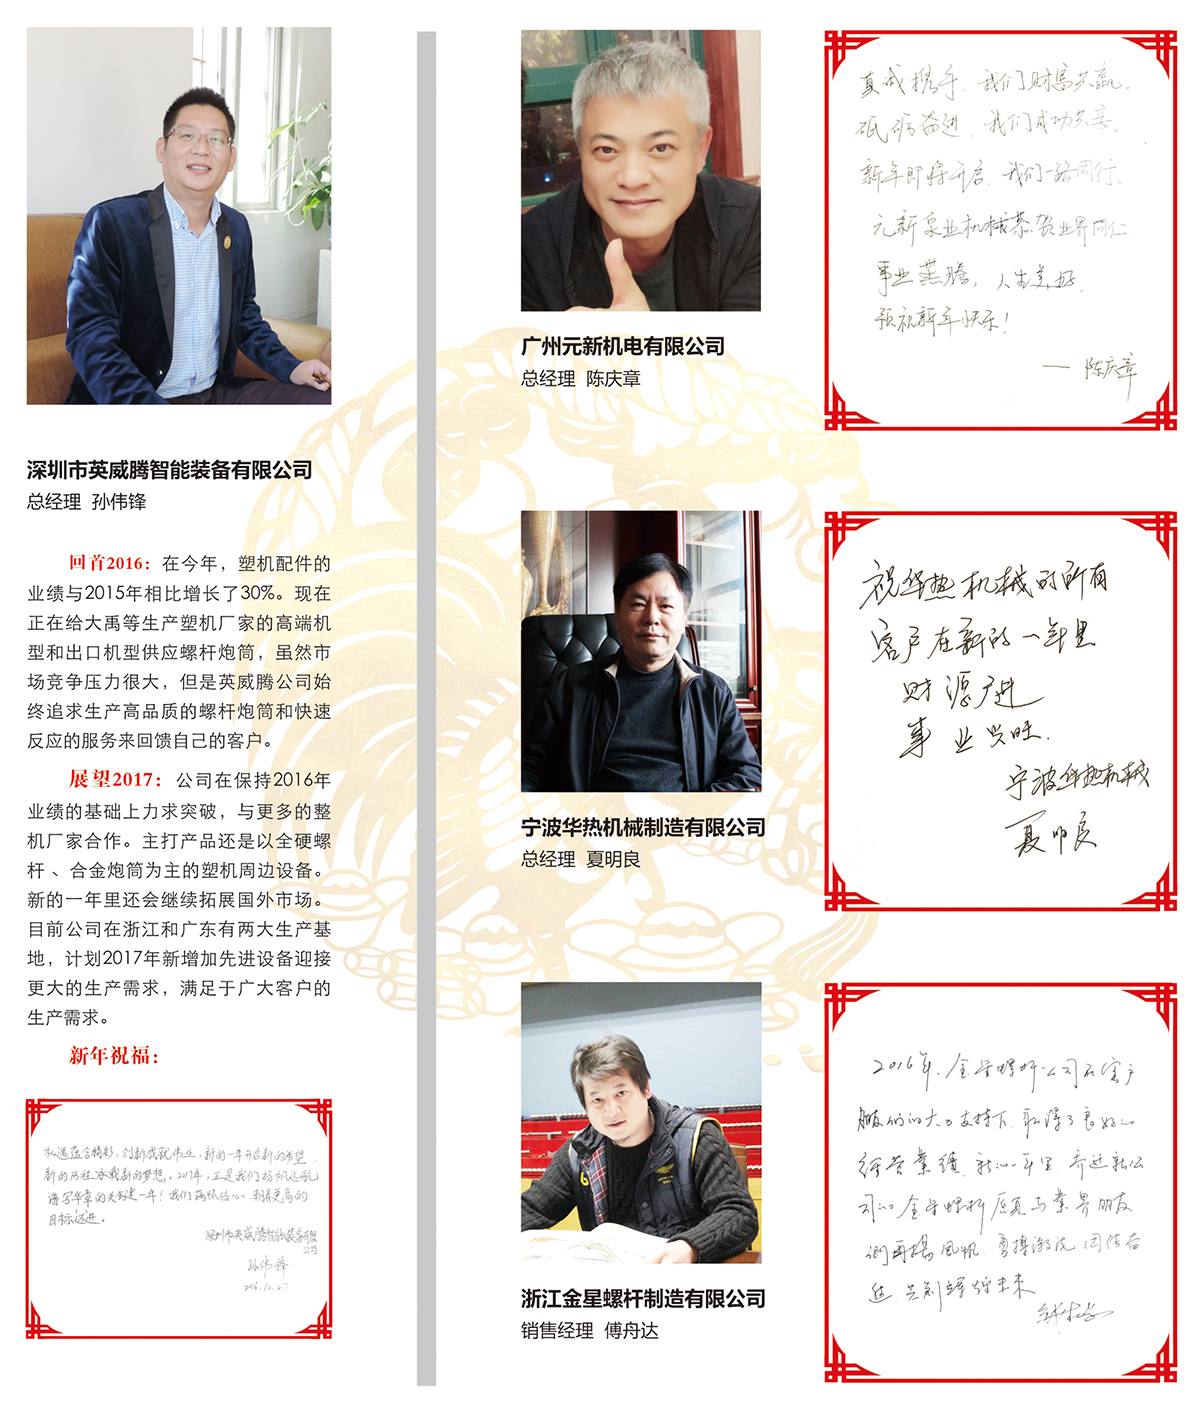 深圳市英威腾智能装备有限公司
总经理 孙伟锋
回首2016：在今年，塑机配件的
业绩与2015年相比增长了30%。现在
正在给大禹等生产塑机厂家的高端机
型和出口机型供应螺杆炮筒，虽然市
场竞争压力很大，但是英威腾公司始
终追求生产高品质的螺杆炮筒和快速
反应的服务来回馈自己的客户。
展望2017：公司在保持2016年
业绩的基础上力求突破，与更多的整
机厂家合作。主打产品还是以全硬螺
杆、合金炮筒为主的塑机周边设备。
新的一年里还会继续拓展国外市场。
目前公司在浙江和广东有两大生产基
地，计划2017年新增加先进设备迎接
更大的生产需求，满足于广大客户的
生产需求。
新年祝福：
机遇蕴含精彩，创新成就伟业，新的一年开启新的希望，
新的历程承载新的梦想。2017年，正是我们扬帆远航
谱写华章的关键一年！我们满怀信心，朝着更高的
目标迈进。
深圳市英威腾智能装备有限
公司
孙伟锋
2016.12.27
广州元新机电有限公司
总经理 陈庆章
真诚携手，我们财富共赢，
砥砺奋进，我们成功共享。
新年即将开启，我们一路同行。
元新泵业机械恭贺业界同仁
事业蒸腾，人生美好，
预祝新年快乐！
— 陈庆章
宁波华热机械制造有限公司
总经理 夏明良
祝华热机械的所有
客户在新的一年里
财源广进
事业兴旺.
宁波华热机械
夏明良
浙江金星螺杆制造有限公司
销售经理 傅舟达
2016年，金星螺杆公司在客户
朋友们的大力支持下，取得了良好的
经营业绩，新的一年里，
金星螺杆愿与业界朋友
们再扬风帆，勇搏激流，
共创辉煌未来